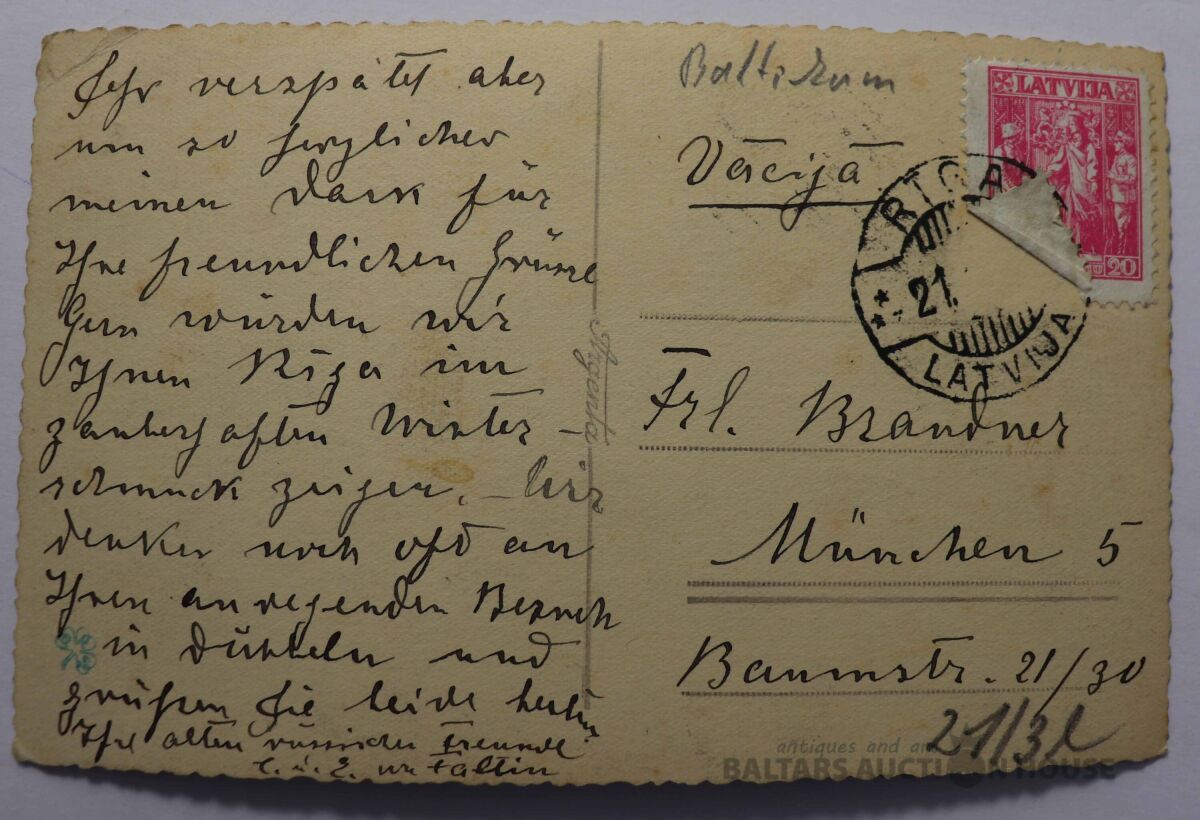 Sehr verspätet aber
um so herzlicher
meinen Dank für
Ihre freundlichen Grüsse
Gern würden wir
Ihnen Riga im
zauberhaften Winter-
schmuck zeigen. – Wir
denken noch oft an
Ihren anregenden Besuch
in und
grüßen Sie beide herzlich
Ihre alten russischen Freunde
Agenta
Baltikum
Vācijā
LATVIJA
20
RIGA
21.
LATVIJA
Frl. Brandner
München 5
Baumstr. 21/30
21/3l
antiques and
BALTARS AUCTION HOUSE